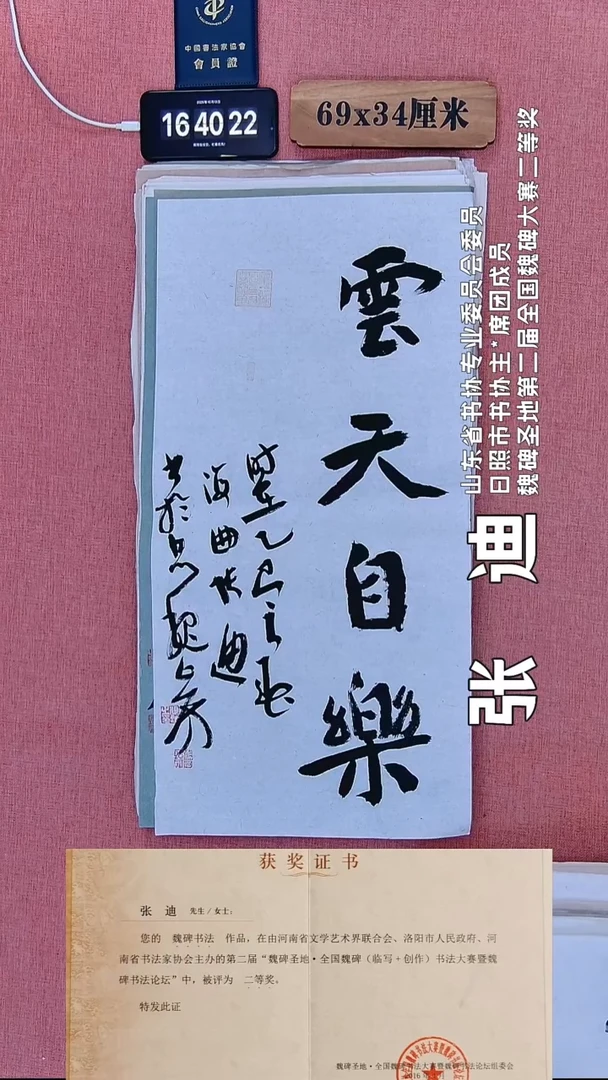 中國書法家協會
會員證
16 40 22
69x34厘米
雲天自樂
時在乙巳之秋
海曲張迪
山东省书协专业委员会委员
日照市书协主*席团成员
魏碑圣地第二届全国魏碑大赛二等奖
张 迪
获奖证书
张 迪 先生/女士:
您的 魏碑书法 作品,在由河南省文学艺术界联合会、洛阳市人民政府、河
南省书法家协会主办的第二届“魏碑圣地·全国魏碑(临写+创作)书法大赛暨魏
碑书法论坛”中,被评为 二等奖。
特发此证
魏碑圣地·全国魏碑书法大赛暨魏碑书法论坛组委会